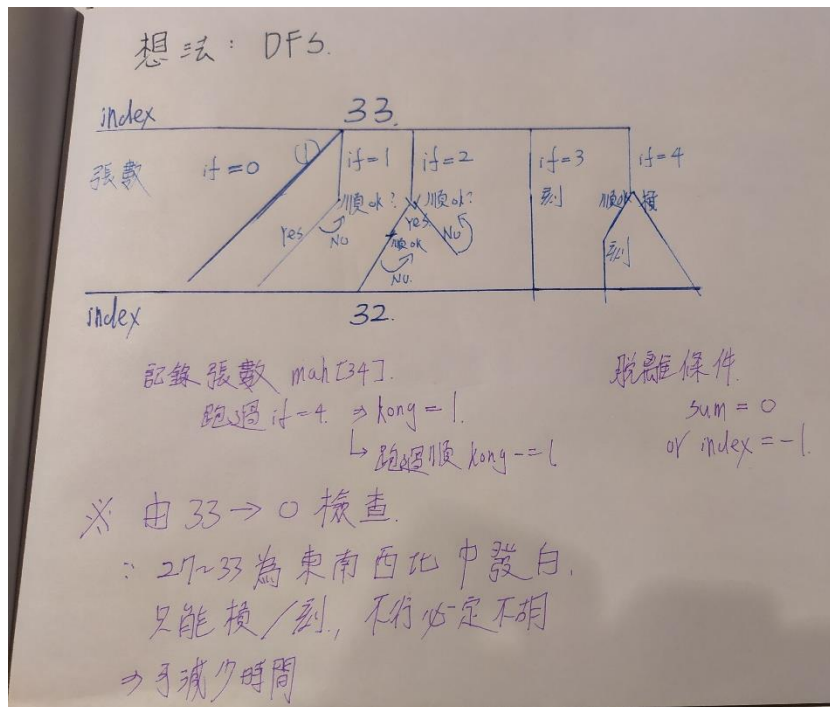 想法: DFS.
index 33.
張數 if=0 (1) if=1 if=2 if=3 if=4
順ok? 順ok? 刻 順ok 槓
Yes No Yes No 順ok No. 刻
index 32.
記錄張數 mah[34].
跑過 if=4 ⇒ kong=1.
↳ 跑過順 kong-=1
脫離條件.
sum=0
or index=-1.
※ 由33→0檢查.
∵ 27~33為東南西北中發白.
只能槓/刻, 不行必定不胡
⇒可減少時間